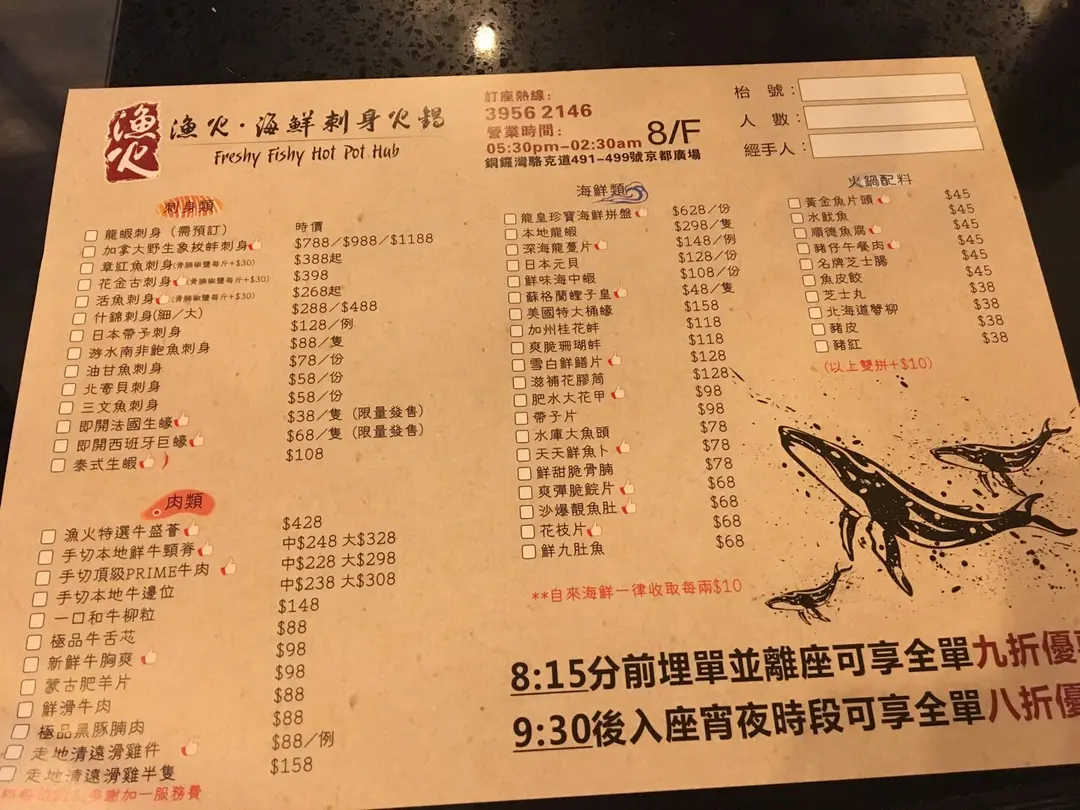 漁火
漁火·海鮮刺身火鍋
Freshy Fishy Hot Pot Hub
訂座熱線:
3956 2146
營業時間:
05:30pm-02:30am 8/F
銅鑼灣駱克道491-499號京都廣場
枱 號:
人 數:
經手人:
刺身類
龍蝦刺身（需預訂） 時價
加拿大野生象拔蚌刺身 $788/$988/$1188
章紅魚刺身(骨腩椒鹽每斤+$30) $388起
花金古刺身(骨腩椒鹽每斤+$30) $398
活魚刺身(骨腩椒鹽每斤+$30) $268起
什錦刺身(細/大) $288/$488
日本帶子刺身 $128/例
游水南非鮑魚刺身 $88/隻
油甘魚刺身 $78/份
北寄貝刺身 $58/份
三文魚刺身 $58/份
即開法國生蠔 $38/隻（限量發售）
即開西班牙巨蠔 $68/隻（限量發售）
泰式生蝦 $108
肉類
漁火特選牛盛薈 $428
手切本地鮮牛頸脊 中$248 大$328
手切頂級PRIME牛肉 中$228 大$298
手切本地牛邊位 中$238 大$308
一口和牛柳粒 $148
極品牛舌芯 $88
新鮮牛胸爽 $98
蒙古肥羊片 $98
鮮滑牛肉 $88
極品黑豚腩肉 $88
走地清遠滑雞件 $88/例
走地清遠滑雞半隻 $158
加一服務費
海鮮類
龍皇珍寶海鮮拼盤 $628/份
本地龍蝦 $298/隻
深海龍躉片 $148/例
日本元貝 $128/份
鮮味海中蝦 $108/份
蘇格蘭蟶子皇 $48/隻
美國特大桶蠔 $158
加州桂花蚌 $118
爽脆珊瑚蚌 $118
雪白鮮鱔片 $128
滋補花膠筒 $128
肥水大花甲 $98
帶子片 $98
水庫大魚頭 $78
天天鮮魚卜 $78
鮮甜脆骨腩 $78
爽彈脆鯇片 $68
沙爆靚魚肚 $68
花枝片 $68
鮮九肚魚 $68
**自來海鮮一律收取每兩$10
火鍋配料
黃金魚片頭 $45
水魷魚 $45
順德魚腐 $45
豬仔午餐肉 $45
名牌芝士腸 $45
魚皮餃 $45
芝士丸 $38
北海道蟹柳 $38
豬皮 $38
豬紅 $38
(以上雙拼+$10)
8:15分前埋單並離座可享全單九折優
9:30後入座宵夜時段可享全單八折優